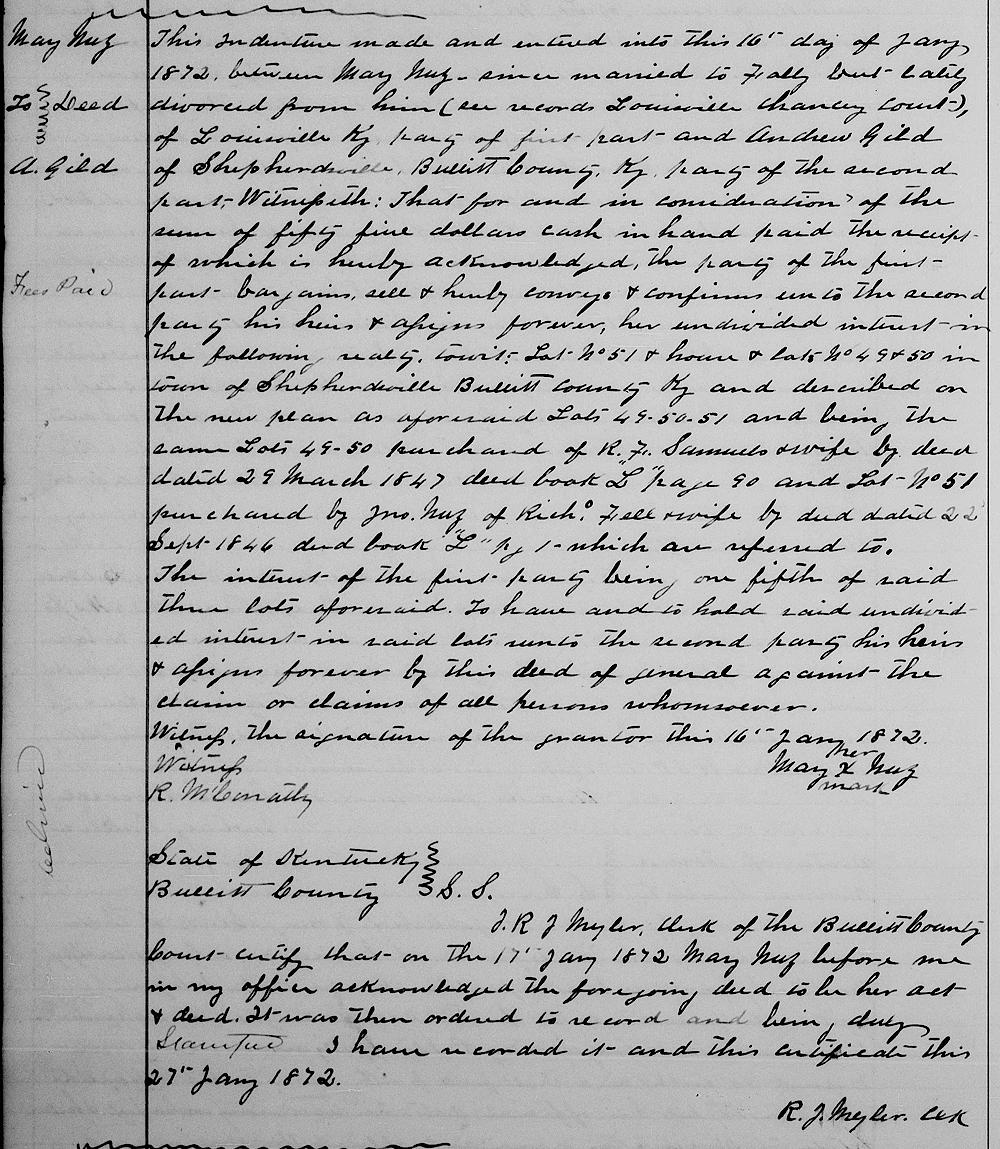 May Nuz
To Deed
A. Gild
Fees Paid
This Indenture made and entered into this 16" day of Jany
1872, between May Nuz - since married to Fally but lately
divorced from him (see records Louisville Chancey Court),
of Louisville Ky, party of first part and Andrew Gild
of Shepherdsville, Bullitt County, Ky, party of the second
part, Witnesseth: That for and in consideration of the
sum of fifty five dollars cash in hand paid the receipt
of which is hereby acknowledged, the party of the first
part bargains, sell & hereby conveys & confirms unto the second
party his heirs & assigns forever, her undivided interest in
the following realty, towit: Lot No 51 & house & lots No 49 & 50 in
town of Shepherdsville Bullitt County Ky and described on
the new plan as aforesaid Lots 49-50-51 and being the
same Lots 49-50 purchased of R. F. Samuels & wife by deed
dated 29 March 1847 deed book "L" page 90 and Lot No 51
purchased by Jno. Nuz of Richd. Fell & wife by deed dated 22
Sept 1846 deed book "L" pg 1 - which are referred to.
The interest of the first party being one fifth of said
three lots aforesaid. To have and to hold said undivid-
ed interest in said lots unto the second party his heirs
& assigns forever by this deed of general against the
claim or claims of all persons whomsoever.
Witness, the signature of the grantor this 16" Jany 1872.
her
Witness May X Nuz
mark
R. McConathy
State of Kentucky
Bullitt County S. S.
I. R J Meyler, Clerk of the Bullitt County
Court certify that on the 17" Jany 1872 May Nuz before me
in my office acknowledged the foregoing deed to be her act
& deed. It was then ordered to record and being duly
Stamped I have recorded it and this certificate this
27" Jany 1872.
R. J. Meyler. Clk